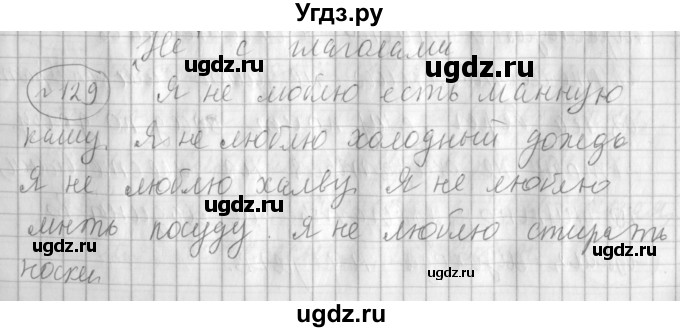 Угдз.ру
Не с глаголами
ugdz.ru
ugdz.ru
№129 Я не люблю есть манную
ugdz.ru
кашу. Я не люблю холодный дождь
ugdz.ru
Я не люблю халву. Я не люблю
ugdz.ru
мыть посуду. Я не люблю стирать
ugdz.ru
ugdz.ru
носки.
ugdz.ru
ugdz.ru